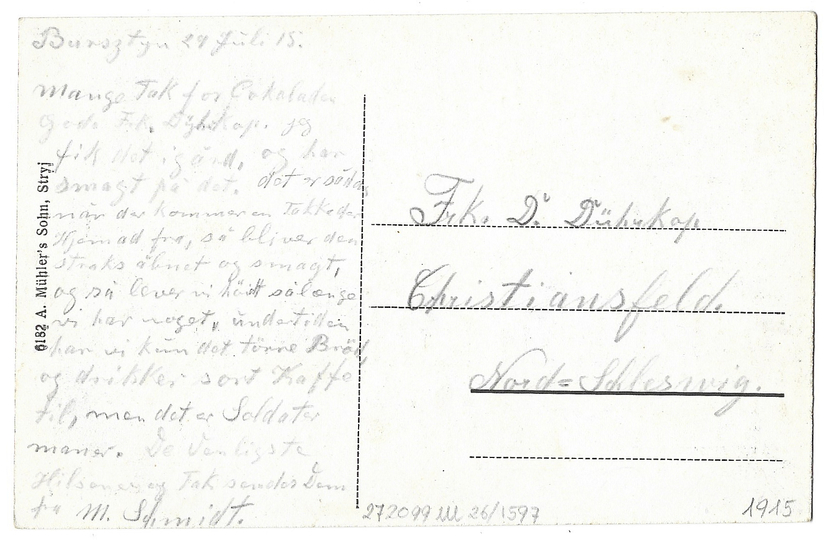 Bursztyn 29 Juli 15.
Mange Tak for Cokoladen
gode Frk. Dührkop. jeg
fik det igård, og har
smagt på det. det er sådan
når der kommer en Pakke der
Hjemad fra, så bliver den
straks åbnet og smagt,
og så lever vi sålænge
vi har noget, undertiden
har vi kun det törre Bröd,
og drikker sort Kaffe
til, men det er Soldater
maner. De Venligste
Hilsener og Tak sendes Dem
fra M. Schmidt.
6182 A. Mühler's Sohn, Stryj
Frk. D. Dührkop
Christiansfeld.
Nord=Schleswig.
272099 26/1597
1915